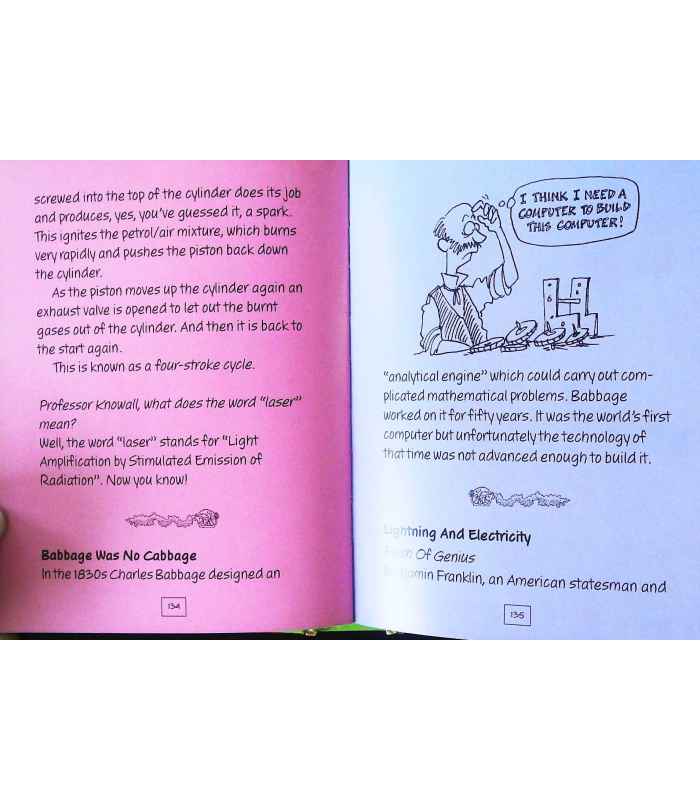 screwed into the top of the cylinder does its job
and produces, yes, you've guessed it, a spark.
This ignites the petrol/air mixture, which burns
very rapidly and pushes the piston back down
the cylinder.
As the piston moves up the cylinder again an
exhaust valve is opened to let out the burnt
gases out of the cylinder. And then it is back to
the start again.
This is known as a four-stroke cycle.
Professor Knowall, what does the word "laser"
mean?
Well, the word "laser" stands for "Light
Amplification by Stimulated Emission of
Radiation". Now you know!
Babbage Was No Cabbage
In the 1830s Charles Babbage designed an
134
I THINK I NEED A
COMPUTER TO BUILD
THIS COMPUTER!
"analytical engine" which could carry out com-
plicated mathematical problems. Babbage
worked on it for fifty years. It was the world's first
computer but unfortunately the technology of
that time was not advanced enough to build it.
Lightning And Electricity
Of Genius
Benjamin Franklin, an American statesman and
135